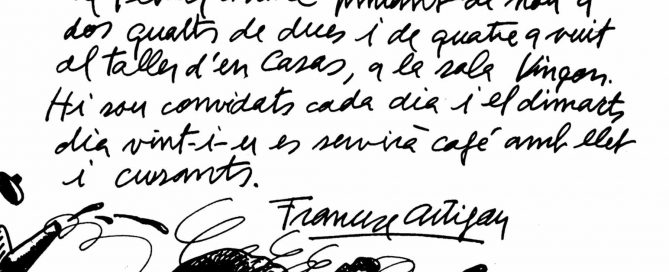 de nou a
dos quarts de dues i de quatre a vuit
al taller d'en Casas, a la sala Vinçon.
Hi sou convidats cada dia i el dimarts
dia vint-i-u es servirà café amb llet
i cursants.
Francesc Artigau